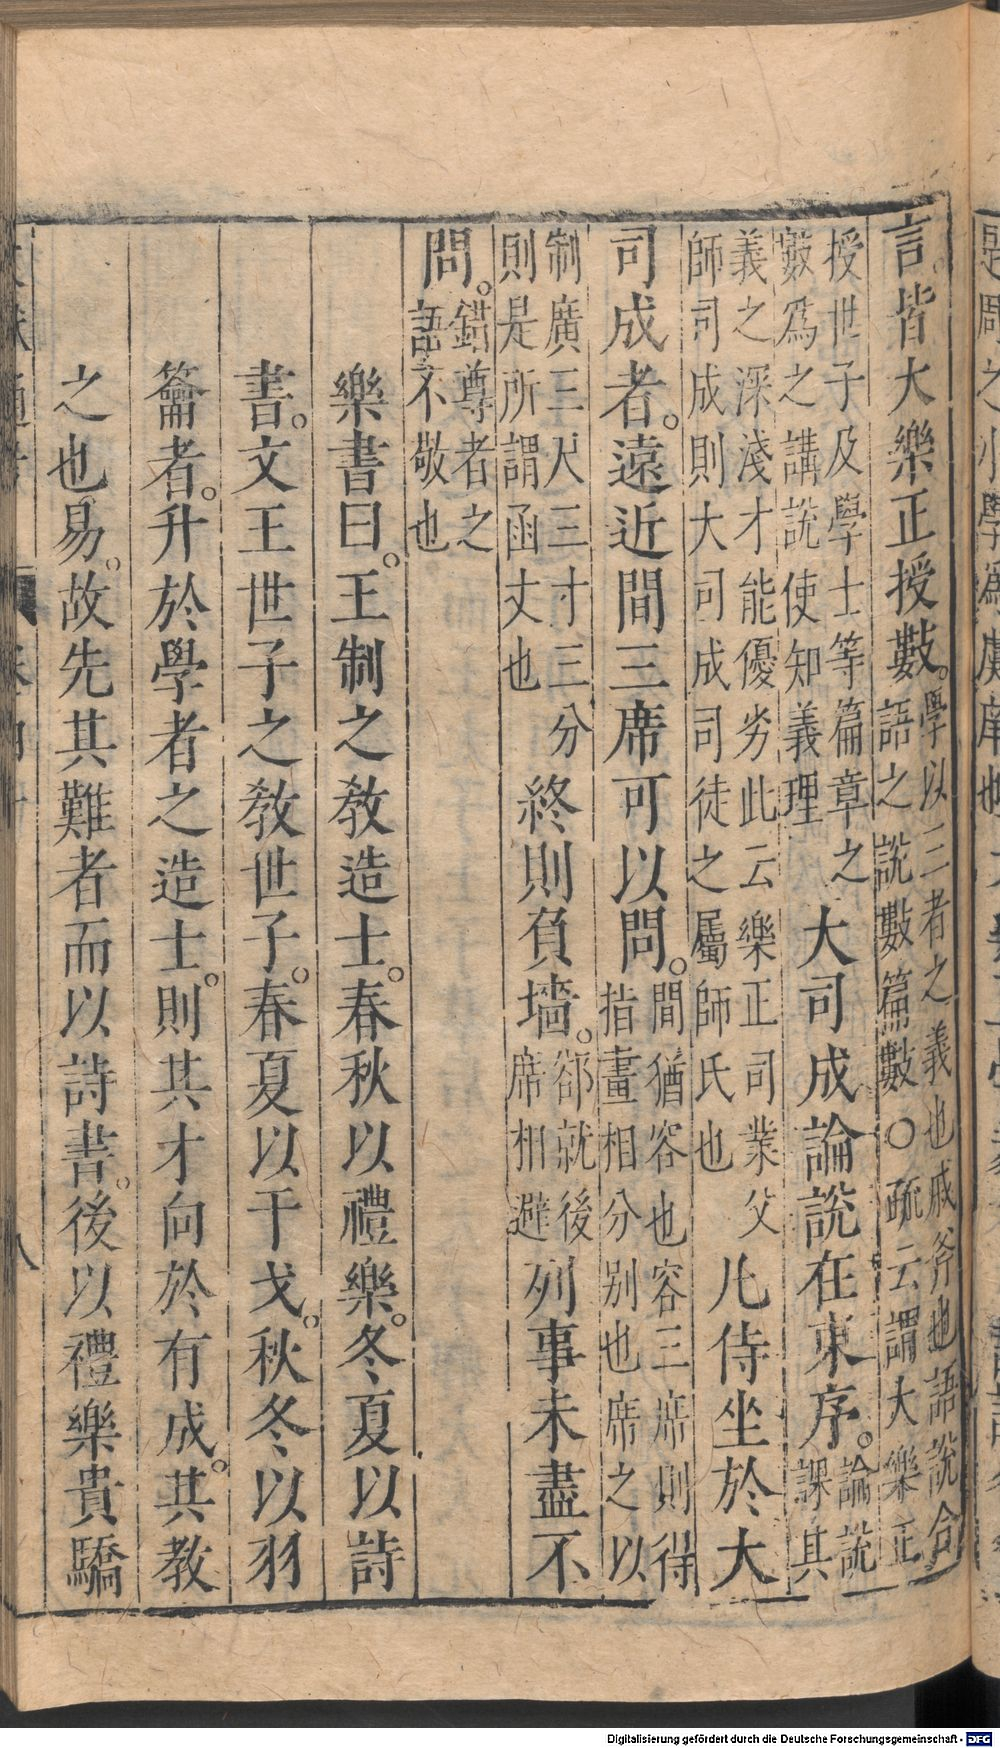 言皆大樂正授數。學以三者之義也戚斧也語說合語之說數篇數○疏云謂大樂正
授世子及學士等篇章之數爲之講說使知義理 大司成論說在東序。論說課其
義之深淺才能優劣此云樂正司業父師司成則大司成司徒之屬師氏也 凡侍坐於大
司成者。遠近間三席可以問。間猶容也容三席則得指畫相分别也席之以
制廣三尺三寸三分則是所謂函丈也 終則負墻。郤就後席相避 列事未盡不
問。錯尊者之語不敬也
樂書曰。王制之教造士。春秋以禮樂。冬夏以詩
書。文王世子之教世子。春夏以干戈。秋冬以羽
籥者。升於學者之造士。則其才向於有成。其教
之也易。故先其難者而以詩書。後以禮樂貴驕
八
Digitalisierung gefördert durch die Deutsche Forschungsgemeinschaft - DFG